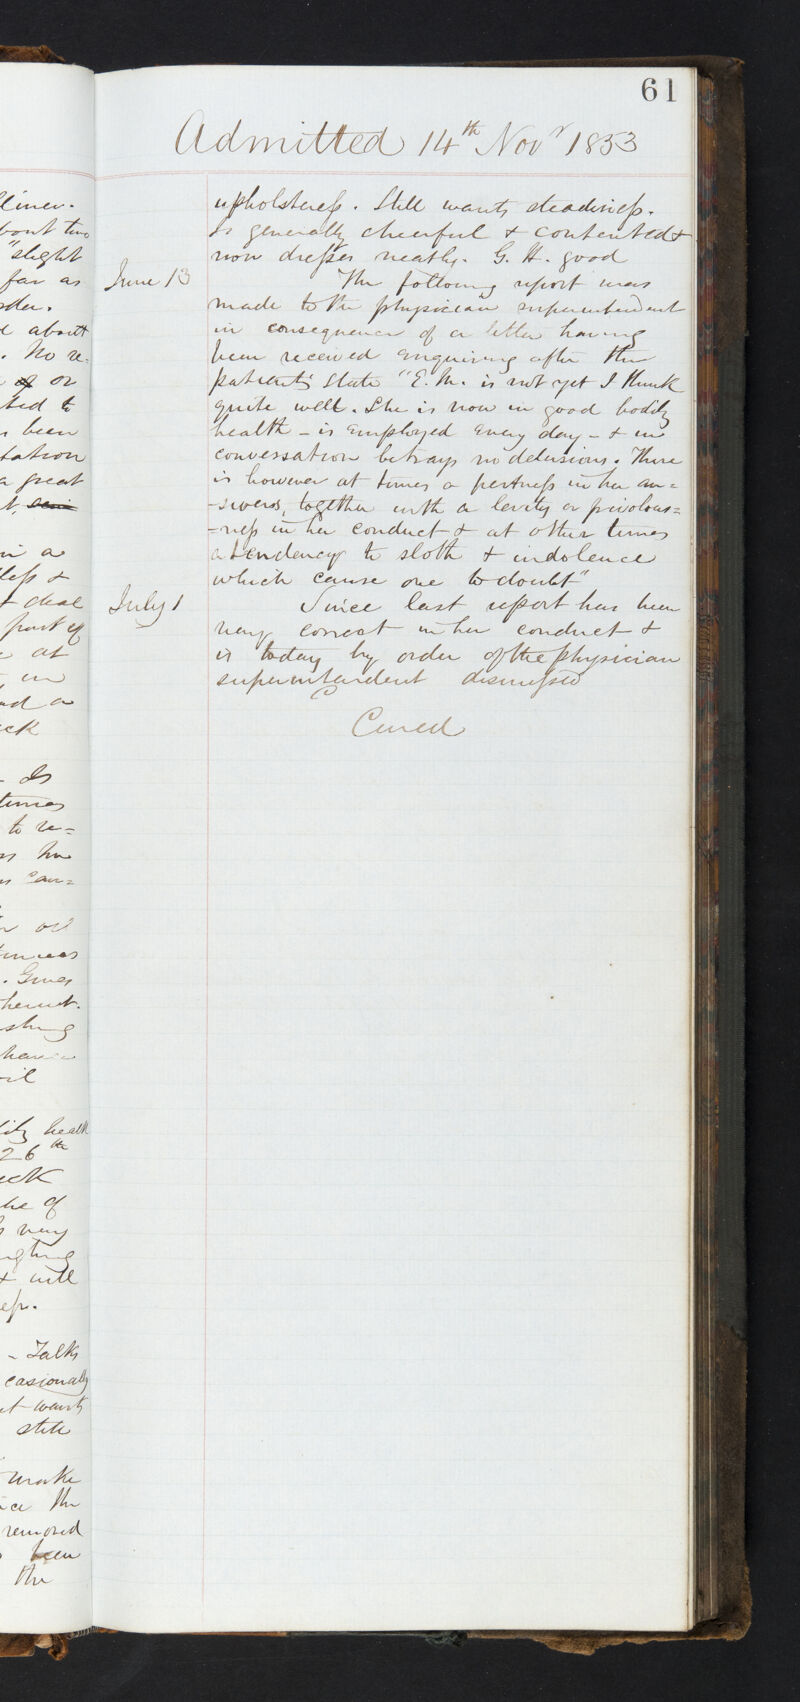 61
Admitted 14th Novr 1853
upholsteress. Still wants steadiness.
Is generally cheerful & contented &
now dresses neatly. G. H. good
June 13 The following report was
made to the physician superintendent
in consequence of a letter having
been received enquiring after this
patient's state "E. M. is not yet I think
quite well. She is now in good bodily
health - is employed every day - & in
conversation betrays no delusions. There
is however at times a pertness in her an=
-swers, together with a levity or frivolous=
-ness in her conduct & at other times
a tendency to sloth & indolence
which cause one to doubt"
July 1 Since last report has been
very correct in her conduct &
is today by order of the physician
superintendent dismissed
Cured
bout two
"slight
far as
about
. No re=
or
to
been
a great
in a
&
part of
at
in
a
Is
times
to re=
. Gives
health
26th
he of
very
& will
- Talks
casionally
wants
state
make
the
removed
been
the